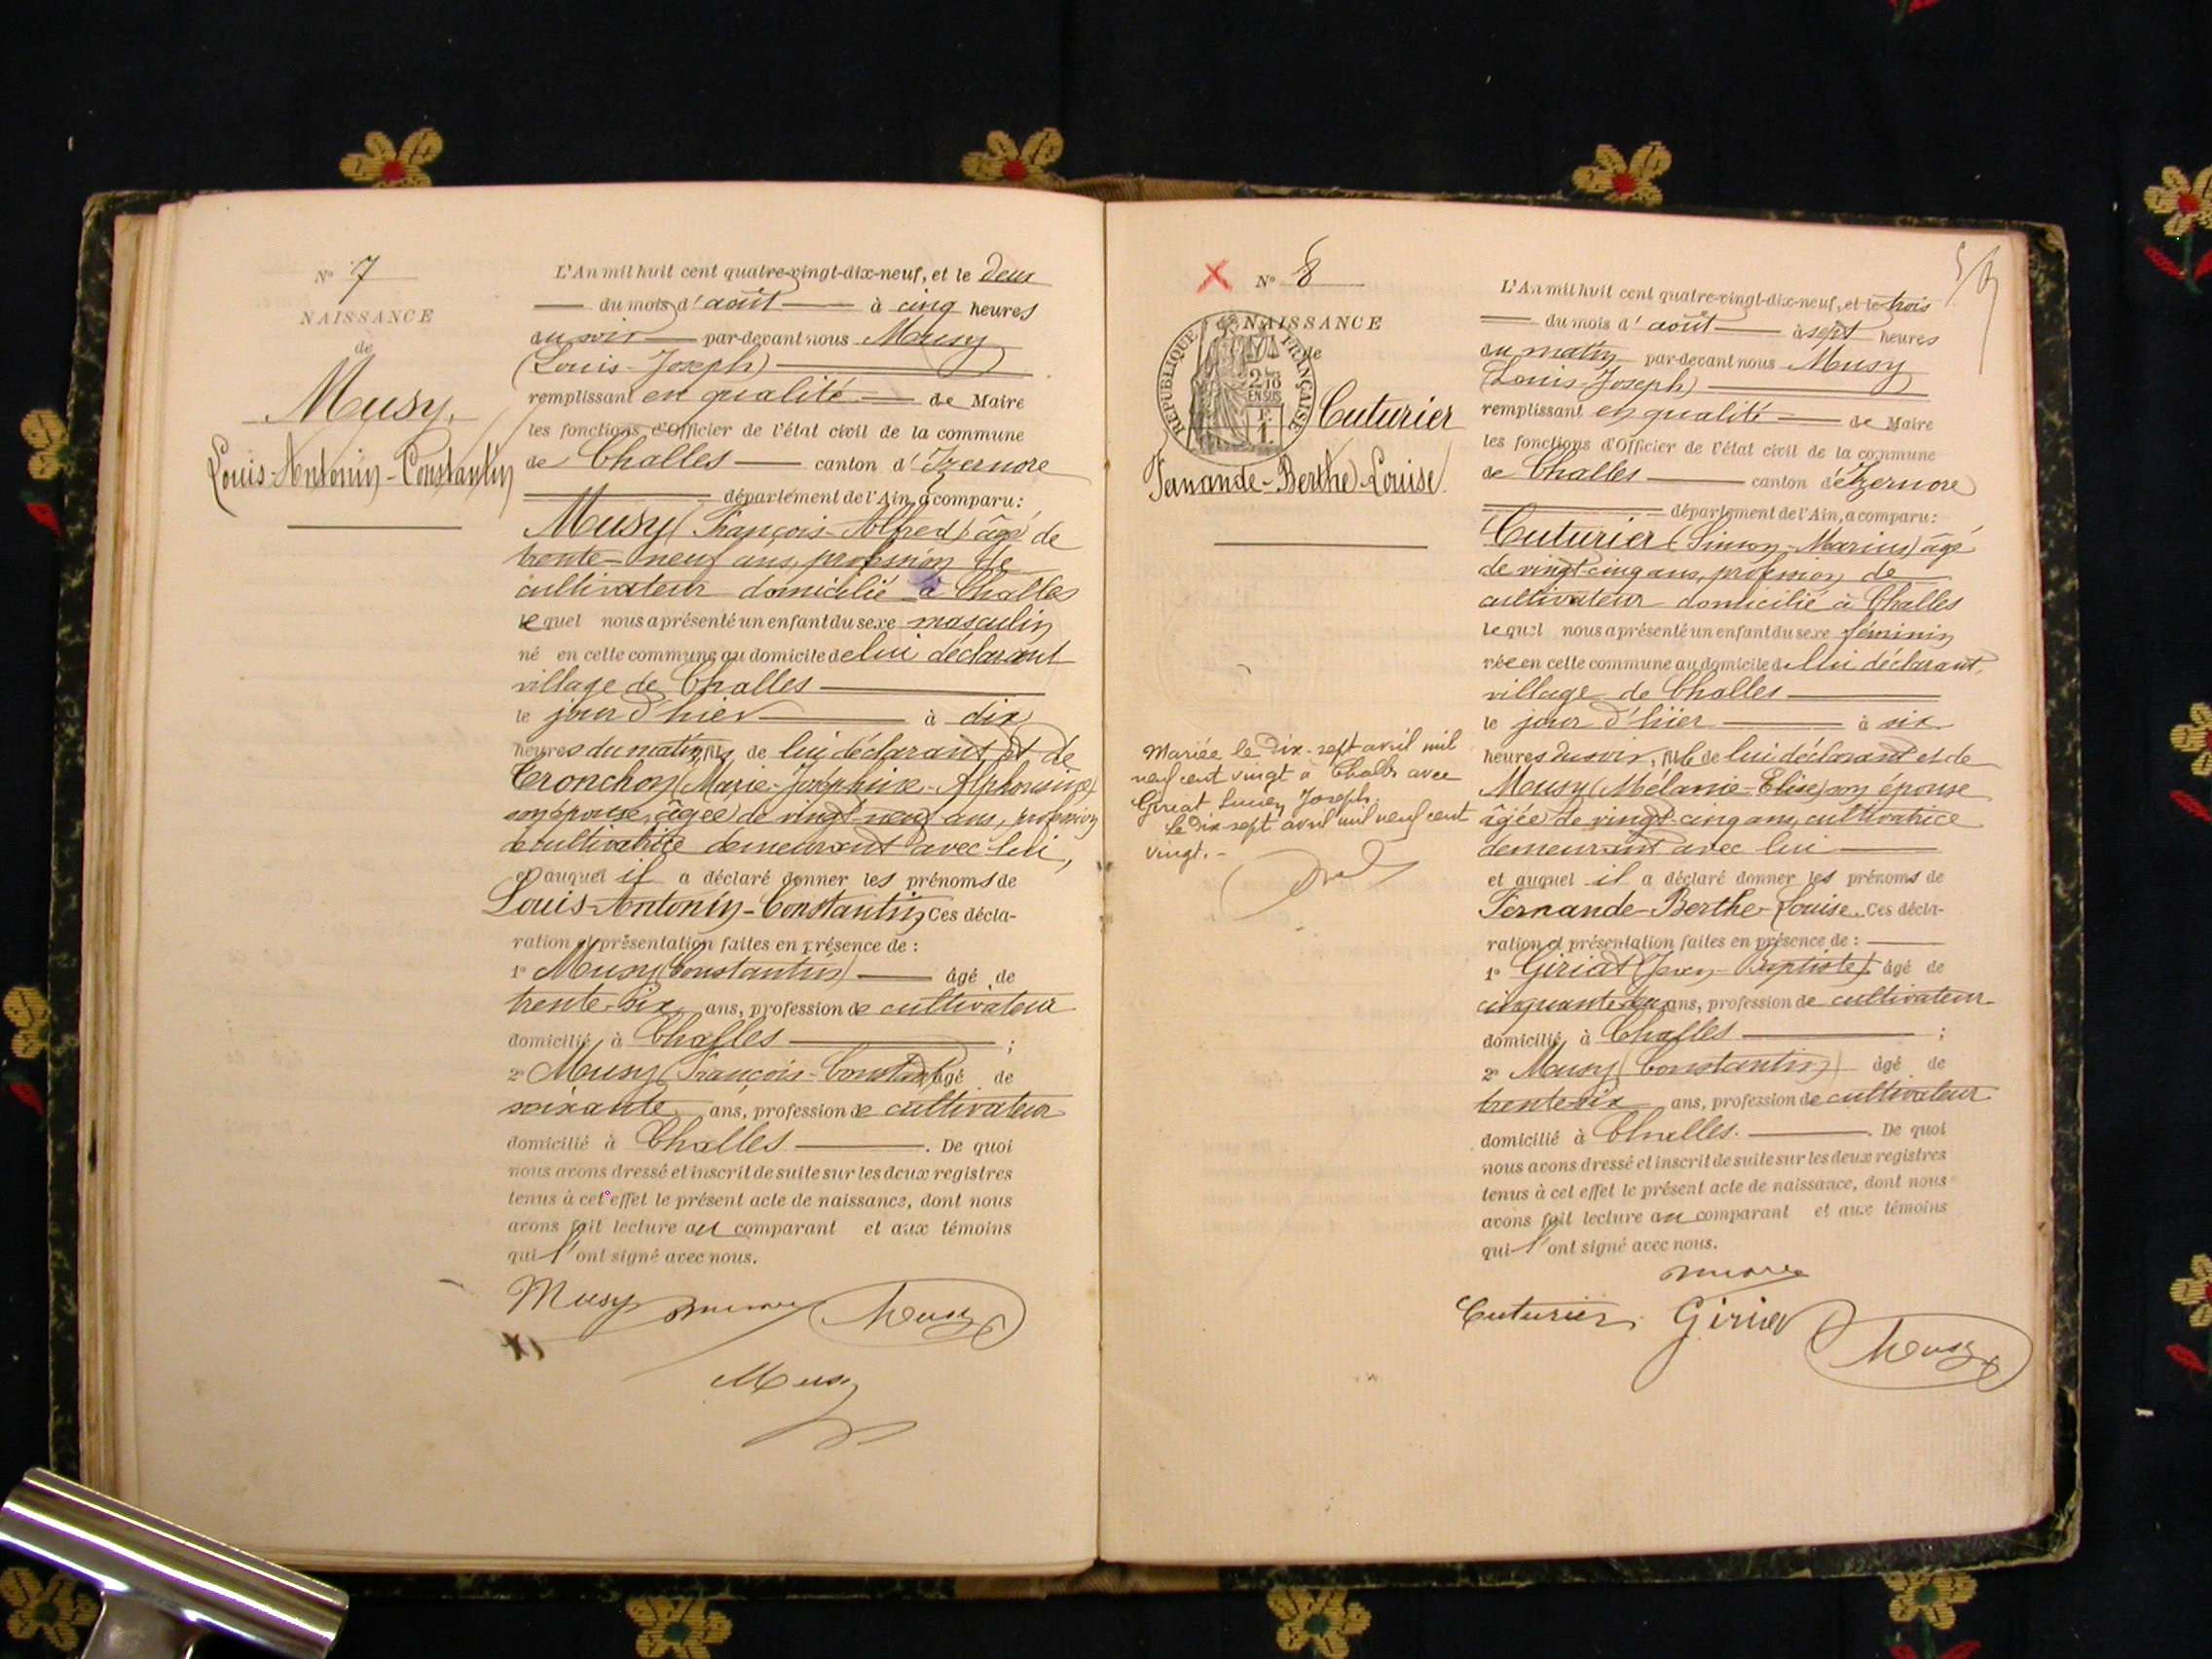 N° 7
NAISSANCE
de
Musy
Louis-Antonin-Constantin
L'An mil huit cent quatre-vingt-dix-neuf, et le deux
du mois d'août à cinq heures
du soir par-devant nous Musy
(Louis-Joseph)
remplissant en qualité de Maire
les fonctions d'Officier de l'état civil de la commune
de Challes canton d'Izernore
département de l'Ain, a comparu:
Musy (François-Alfred) âgé de
trente-neuf ans, profession de
cultivateur domicilié à Challes
lequel nous a présenté un enfant du sexe masculin
né en cette commune au domicile de lui déclarant
village de Challes
le jour d'hier à dix
heures du matin, fils de lui déclarant et de
Tronchon (Marie-Joséphine-Alphonsine)
son épouse, âgée de vingt-neuf ans, profession
de cultivatrice demeurant avec lui,
et auquel il a déclaré donner les prénoms de
Louis-Antonin-Constantin Ces décla-
ration et présentation faites en présence de :
1° Musy (Constantin) âgé de
trente-six ans, profession de cultivateur
domicilié à Challes ;
2° Musy (François-Constant) âgé de
soixante ans, profession de cultivateur
domicilié à Challes . De quoi
nous avons dressé et inscrit de suite sur les deux registres
tenus à cet effet le présent acte de naissance, dont nous
avons fait lecture au comparant et aux témoins
qui l'ont signé avec nous.
Musy Musy
Musy
N° 8
NAISSANCE
de
RÉPUBLIQUE FRANÇAISE
2/10
EN SUS
Cuturier
Fernande-Berthe-Louise.
Mariée le dix-sept avril mil
neuf cent vingt à Challes avec
Giriat Lucien Joseph.
Le dix-sept avril mil neuf cent
vingt.-
L'An mil huit cent quatre-vingt-dix-neuf, et le trois
du mois d'août à sept heures
du matin par-devant nous Musy
(Louis-Joseph)
remplissant en qualité de Maire
les fonctions d'Officier de l'état civil de la commune
de Challes canton d'Izernore
département de l'Ain, a comparu:
Cuturier (Simon-Marius) âgé
de vingt-cinq ans, profession de
cultivateur domicilié à Challes
lequel nous a présenté un enfant du sexe féminin
née en cette commune au domicile de lui déclarant,
village de Challes
le jour d'hier à six
heures du soir, fille de lui déclarant et de
Musy (Mélanie-Elise) son épouse
âgée de vingt-cinq ans, cultivatrice
demeurant avec lui
et auquel il a déclaré donner les prénoms de
Fernande-Berthe-Louise. Ces décla-
ration et présentation faites en présence de :
1° Giriat (Jean-Baptiste) âgé de
cinquante-deux ans, profession de cultivateur
domicilié à Challes ;
2° Musy (Constantin) âgé de
trente-six ans, profession de cultivateur
domicilié à Challes. . De quoi
nous avons dressé et inscrit de suite sur les deux registres
tenus à cet effet le présent acte de naissance, dont nous
avons fait lecture au comparant et aux témoins
qui l'ont signé avec nous.
Cuturier Giriat Musy